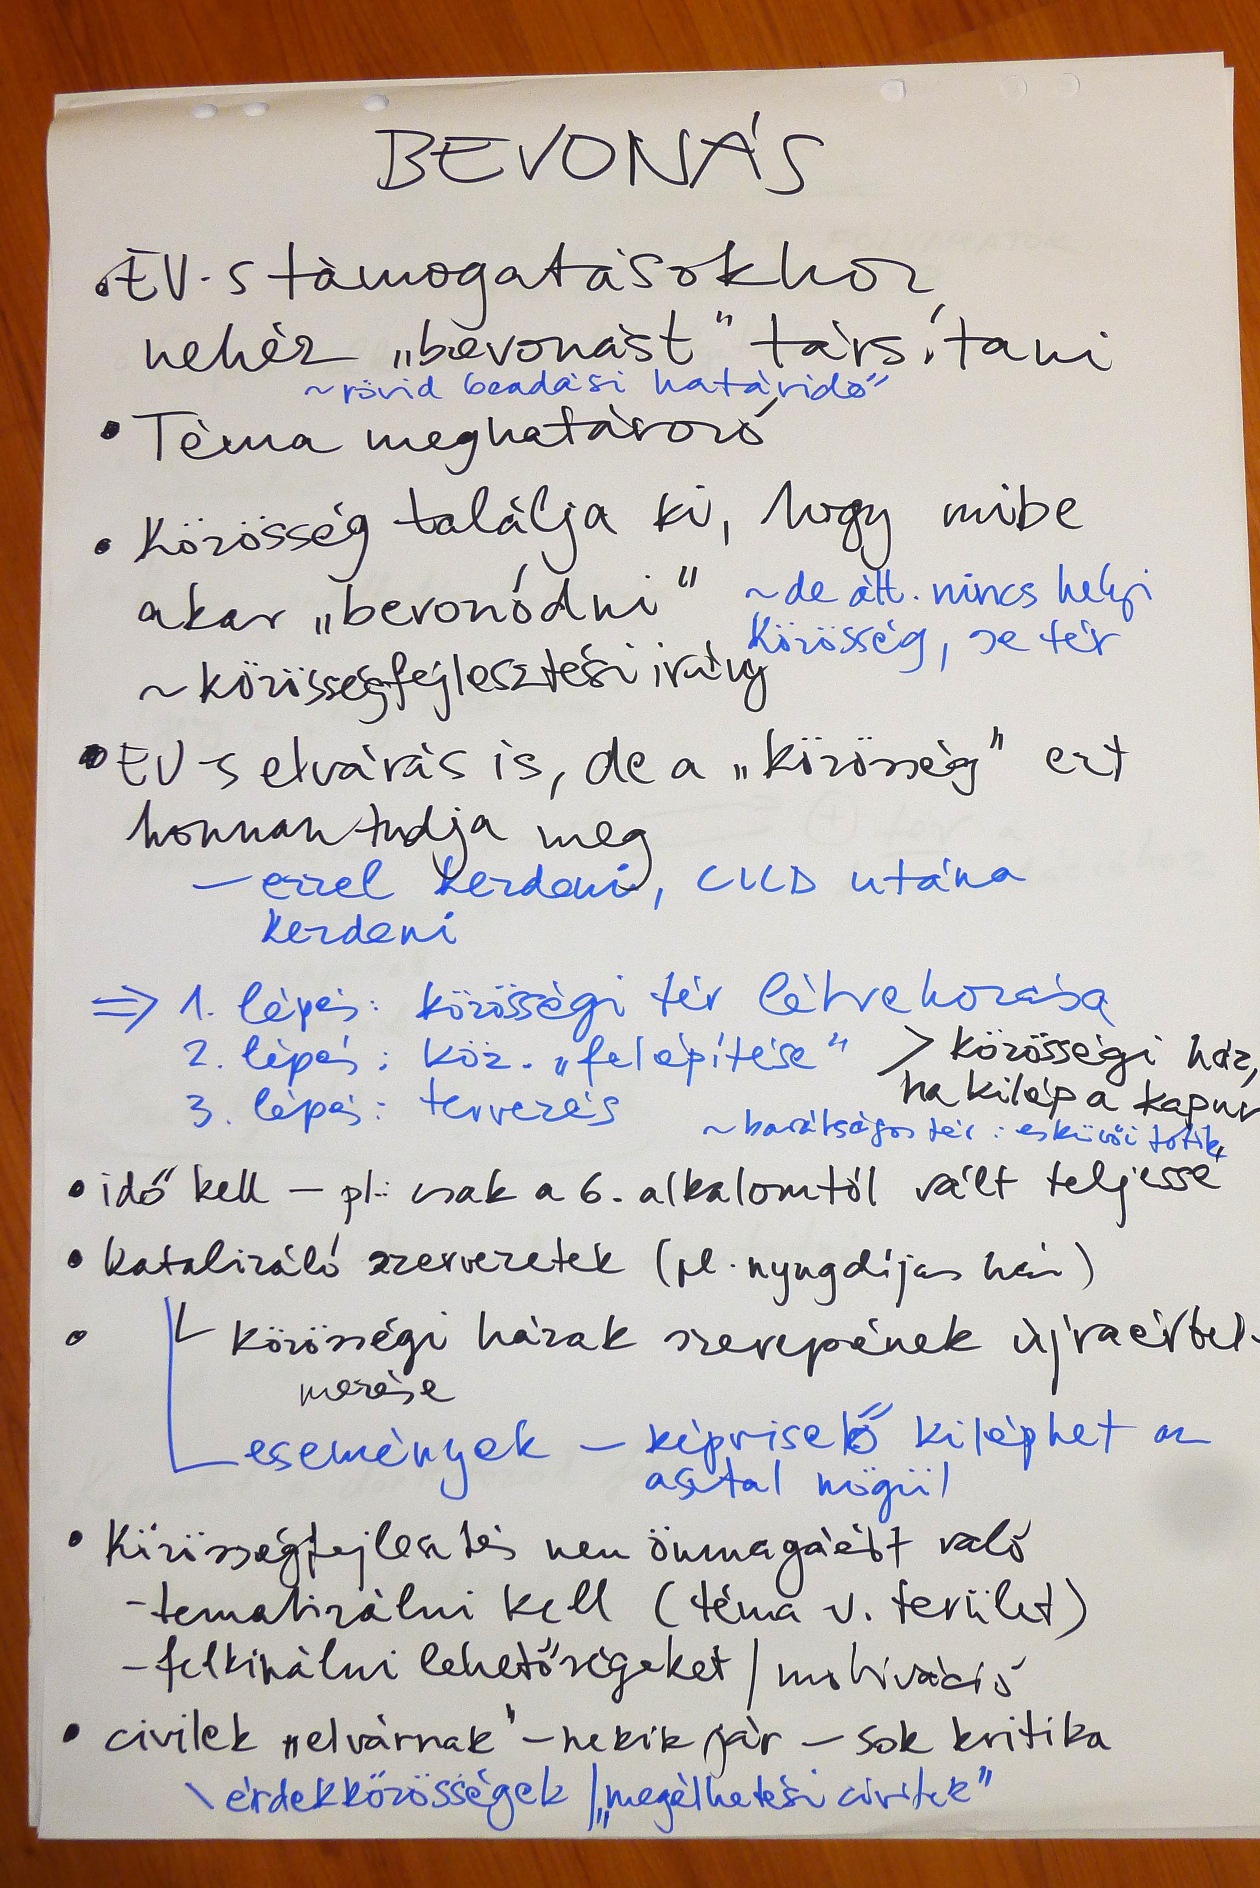 BEVONÁS
• EU-s támogatásokhoz
nehéz „bevonást" társítani
~rövid beadási határidő
• Téma meghatározó
• Közösség találja ki, hogy mibe
akar „bevonódni"
~de ált. nincs helyi
közösség, se tér
~közösségfejlesztési irány
• EU-s elvárás is, de a „közösség" ezt
honnan tudja meg
— ezzel kezdeni, CLLD utána
kezdeni
⇒ 1. lépés: közösségi tér létrehozása
2. lépés: köz. „felépítése"
> közösségi ház,
ha kilép a kapun
3. lépés: tervezés
~barátságos tér: esküvői fotók
• idő kell – pl.: csak a 6. alkalomtól vált teljessé
• katalizáló szervezetek (pl. nyugdíjas ház)
• közösségi házak szerepének újraértel-
mezése
események – képviselő kiléphet az
asztal mögül
• Közösségfejlesztés nem önmagáért való
- tematizálni kell (téma v. terület)
- felkínálni lehetőségeket / motiváció
• civilek „elvárnak" – nekik jár – sok kritika
\ érdekközösségek / „megélhetési civilek"